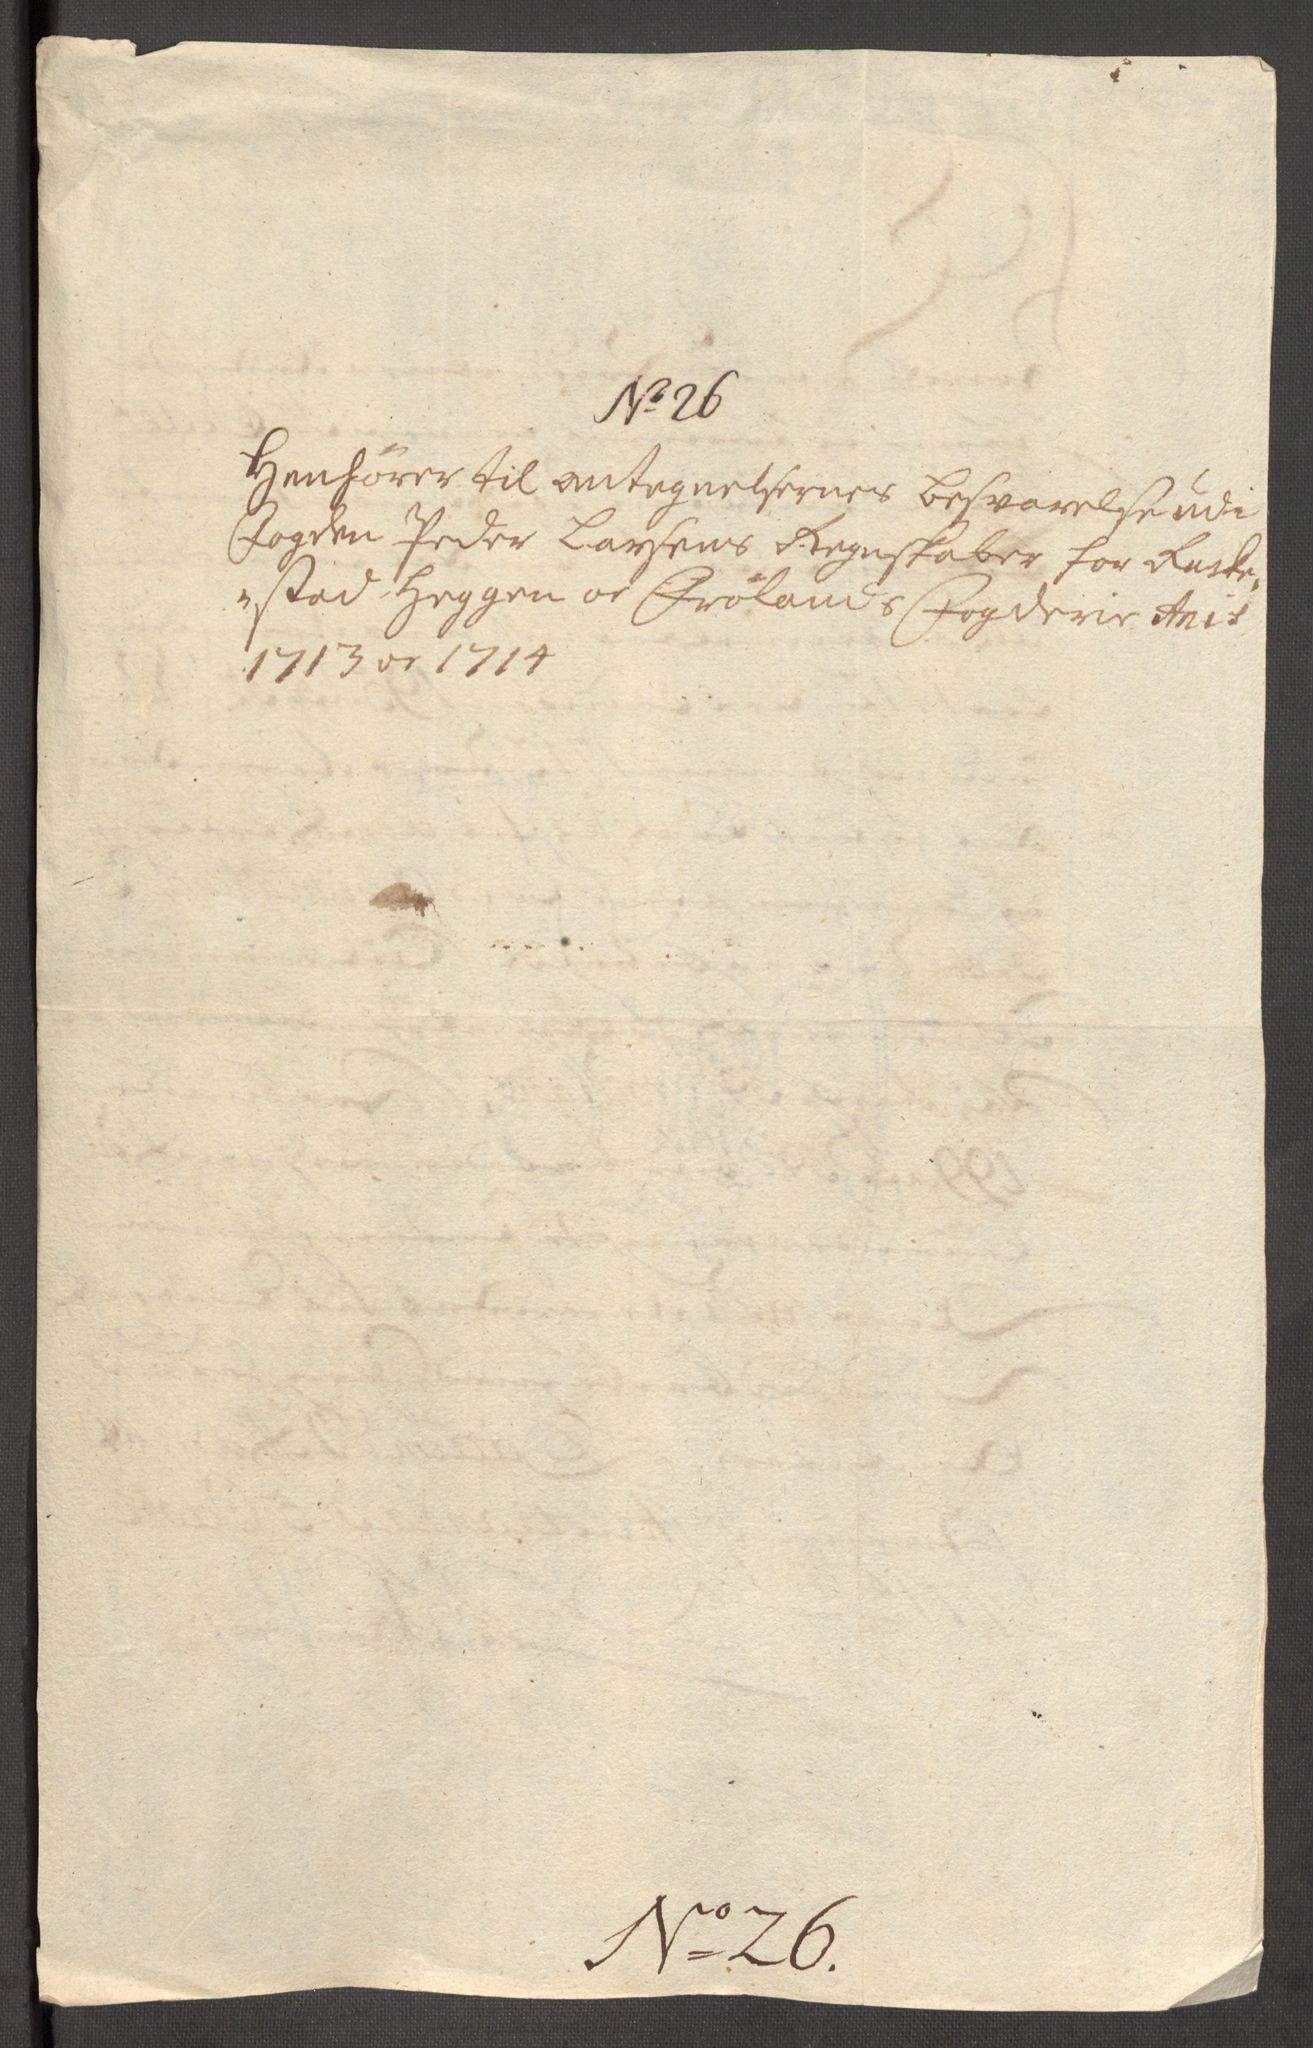 No 26
Henhörer til antegnelsernes besvarelse udi
Fogden Peder Larsens Regnskaber for Racke„
„stad Heggen oc Frölands Fogderie
1713 oc 1714
No 26.